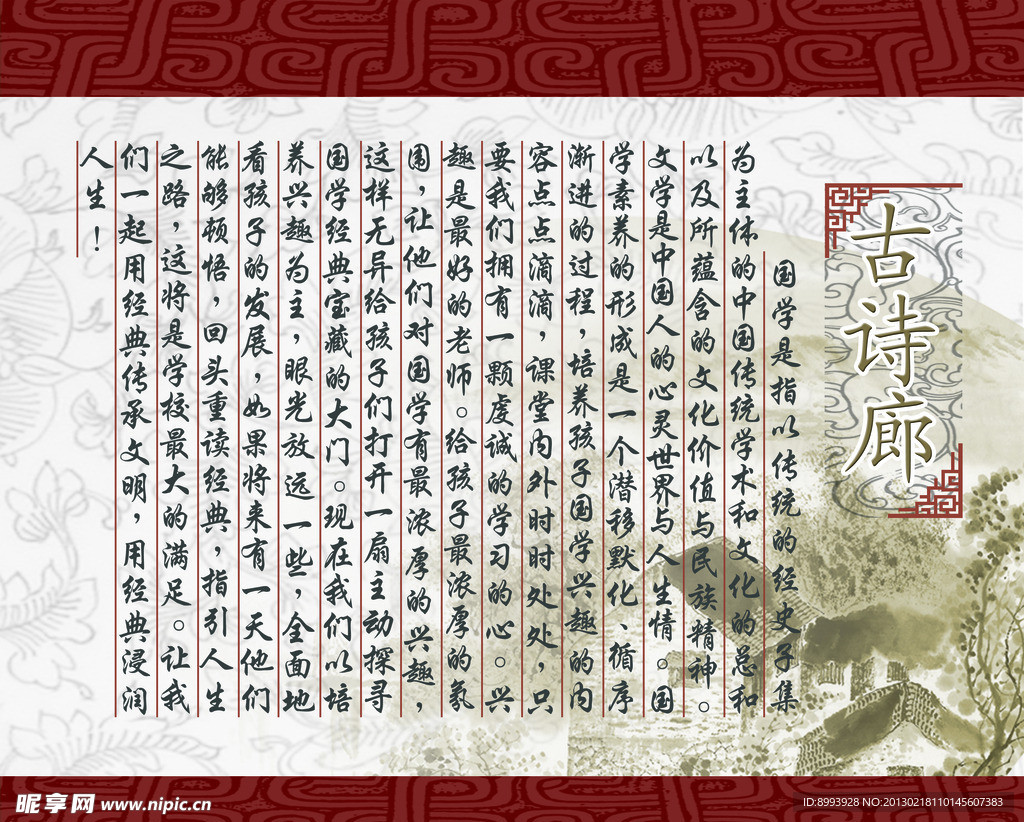 古诗廊
国学是指以传统的经史子集
为主体的中国传统学术和文化的总和
以及所蕴含的文化价值与民族精神。
文学是中国人的心灵世界与人生情。国
学素养的形成是一个潜移默化、循序
渐进的过程，培养孩子国学兴趣的内
容点点滴滴，课堂内外时时处处，只
要我们拥有一颗虔诚的学习的心。兴
趣是最好的老师。给孩子最浓厚的氛
围，让他们对国学有最浓厚的兴趣，
这样无异给孩子们打开一扇主动探寻
国学经典宝藏的大门。现在我们以培
养兴趣为主，眼光放远一些，全面地
看孩子的发展，如果将来有一天他们
能够顿悟，回头重读经典，指引人生
之路，这将是学校最大的满足。让我
们一起用经典传承文明，用经典浸润
人生！
昵享网 www.nipic.cn
ID:8993928 NO:20130218110145607383